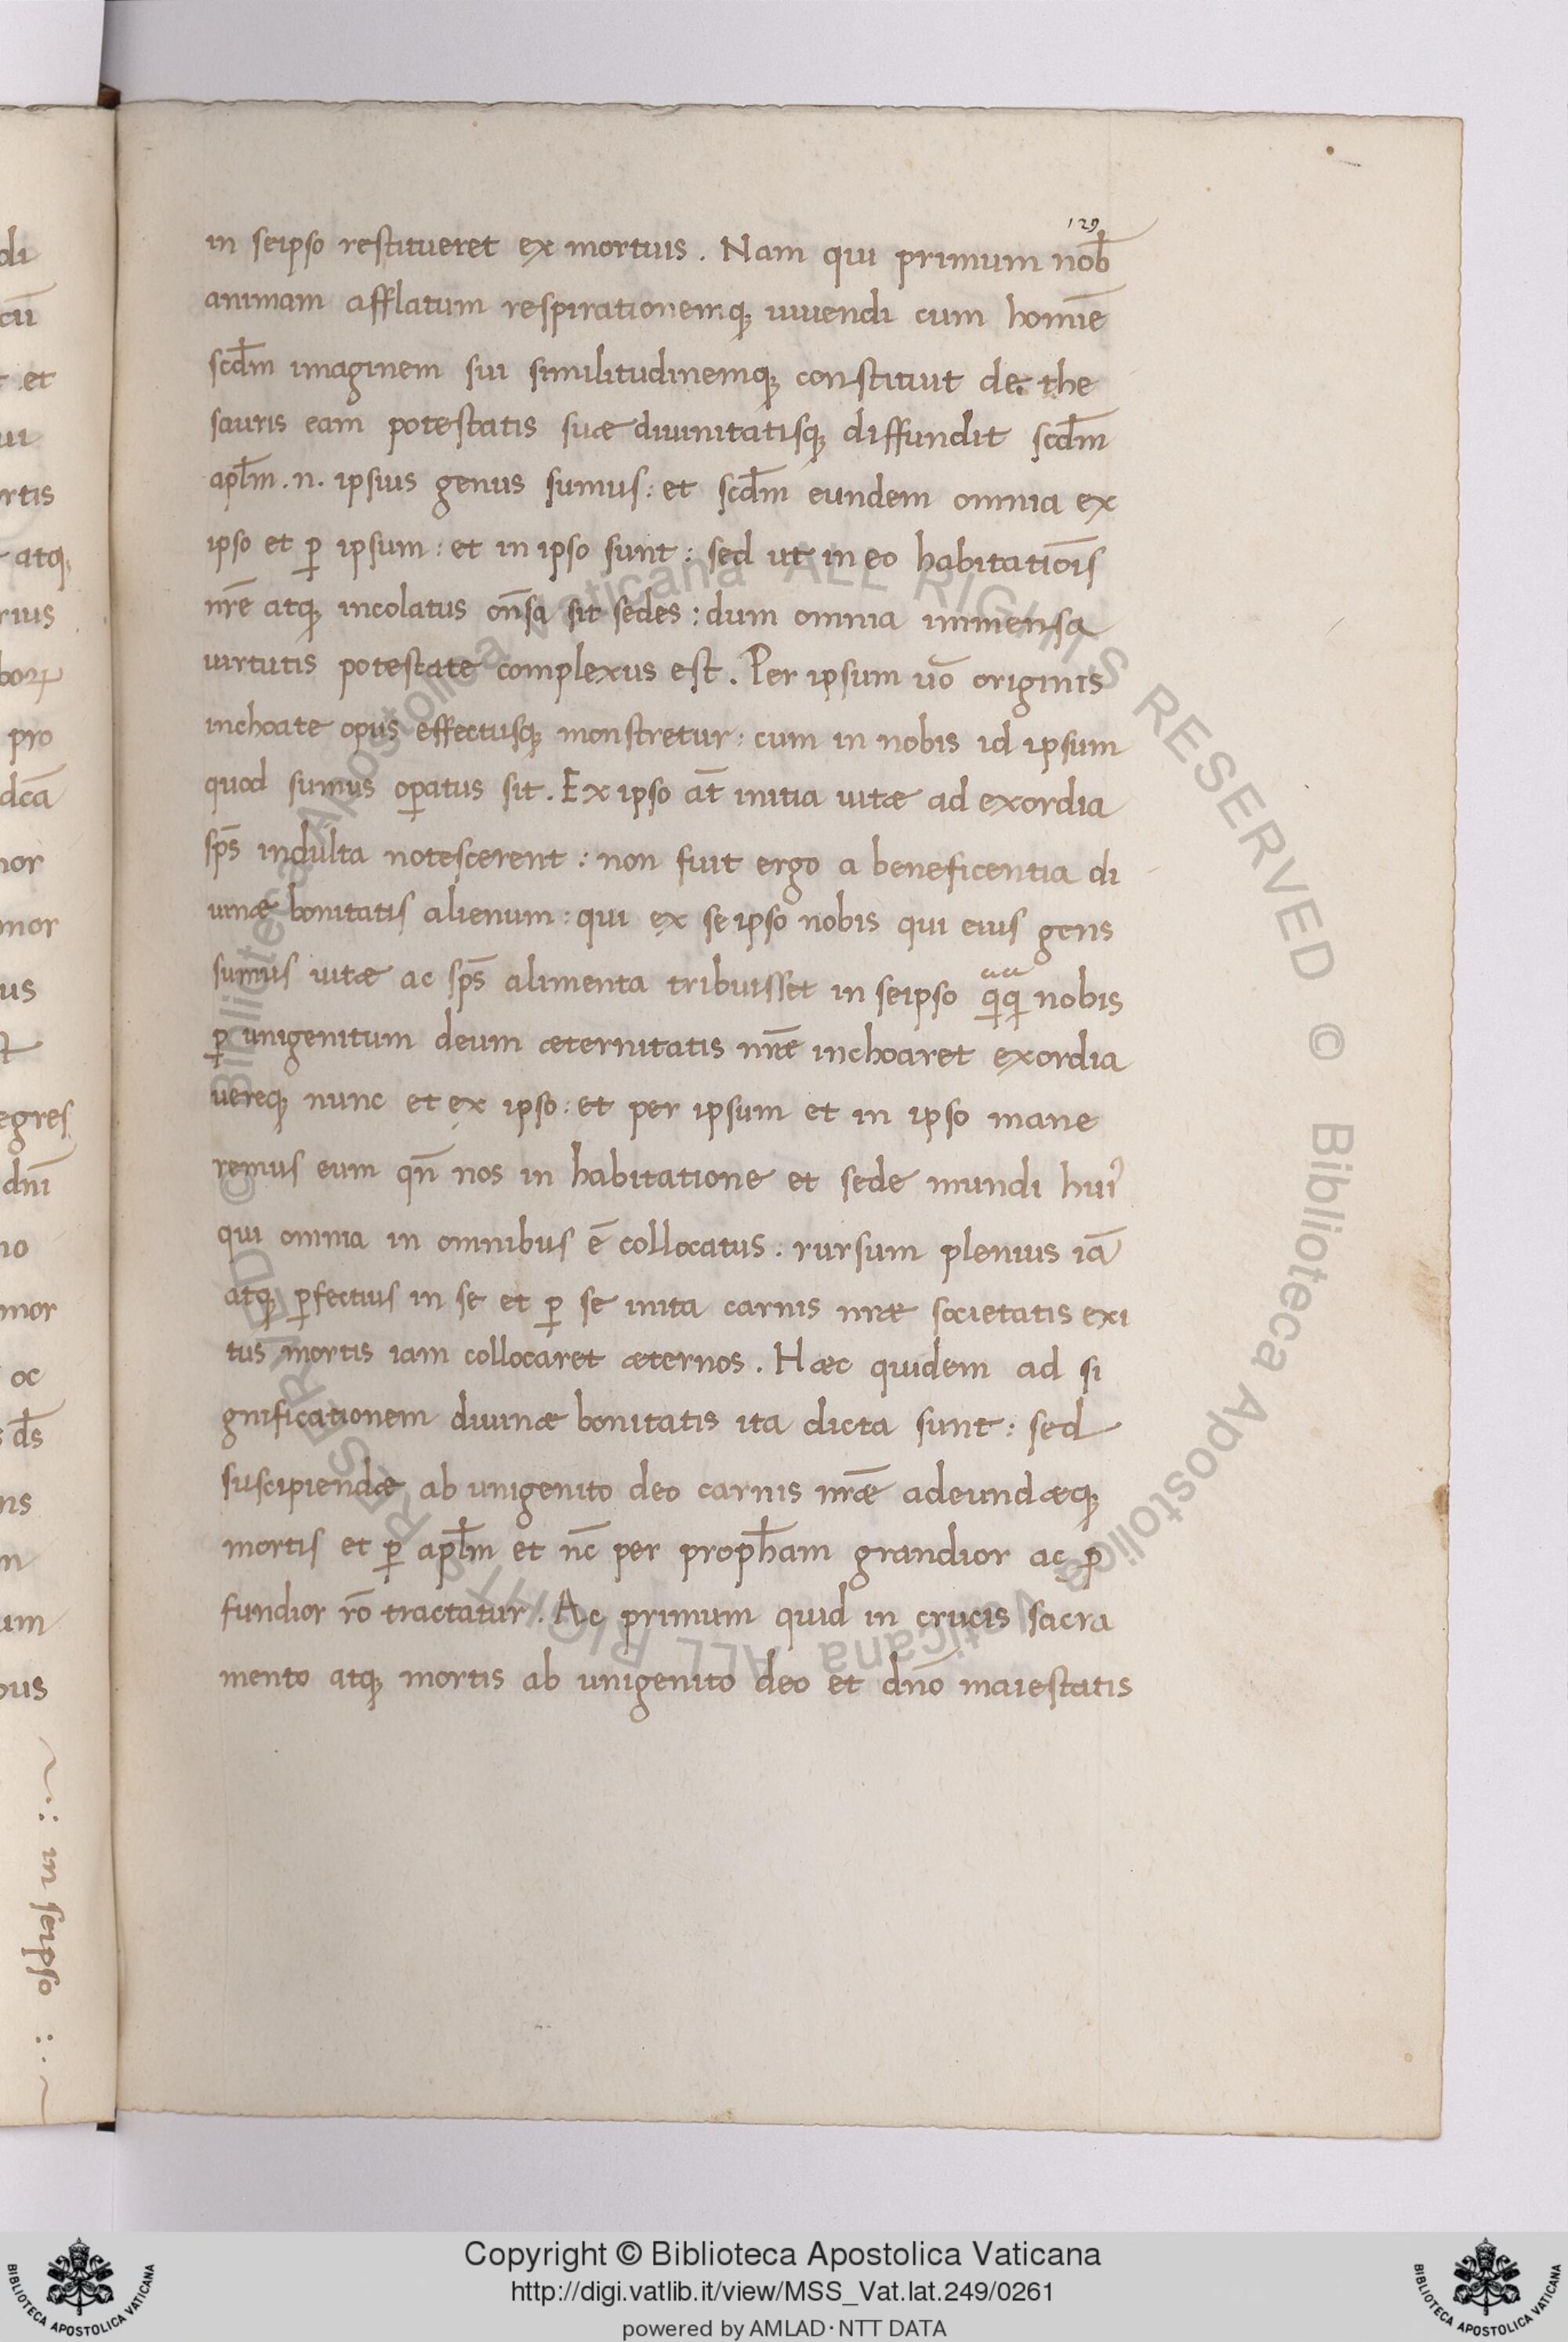 129
in seipso restitueret ex mortuis. Nam qui primum nob̄
animam afflatum respirationemq; uiuendi cum homīē
scd̄m imaginem sui similitudinemq; constituit de the
sauris eam potestatis suæ diuinitatisq; diffundit scd̄m
apl̄m .n. ipsius genus sumus: et scd̄m eundem omnia ex
ipso et ꝑ ipsum: et in ipso sunt: sed ut in eo habitatiōis
nr̄e atq; incolatus on̄sa sit sedes: dum omnia immensa
uirtutis potestate complexus est. Per ipsum uō originis
inchoate opus effectusq; monstretur: cum in nobis id ipsum
quod sumus oꝑatus sit. Ex ipso āt initia uitæ ad exordia
sp̄s indulta notescerent: non fuit ergo a beneficentia di
uinæ bonitatis alienum: qui ex se ipso nobis qui eius gens
sumus uitæ ac sp̄s alimenta tribuisset in seipso qͣqͣ nobis
ꝑ unigenitum deum æternitatis nr̄æ inchoaret exordia
uereq; nunc et ex ipso: et per ipsum et in ipso mane
remus eum qn̄ nos in habitatione et sede mundi hui᾽
qui omnia in omnibus ē collocatus: rursum plenius iā
atq; ꝑfectius in se et ꝑ se inita carnis nræ societatis exi
tus mortis iam collocaret æternos. Hæc quidem ad si
gnificationem diuinæ bonitatis ita dicta sunt: sed
suscipiendæ ab unigenito deo carnis nr̄æ adeundæq;
mortis et ꝑ apl̄m et nc̄ per proph̄am grandior ac ꝓ
fundior rō tractatur. Ac primum quid in crucis sacra
mento atq; mortis ab unigenito deo et dn̄o maiestatis
in seipso
© Biblioteca Apostolica Vaticana ALL RIGHTS RESERVED © Biblioteca Apostolica Vaticana ALL RIGHTS RESERVED
Copyright © Biblioteca Apostolica Vaticana
http://digi.vatlib.it/view/MSS_Vat.lat.249/0261
powered by AMLAD·NTT DATA
BIBLIOTECA APOSTOLICA VATICANA
BIBLIOTECA APOSTOLICA VATICANA